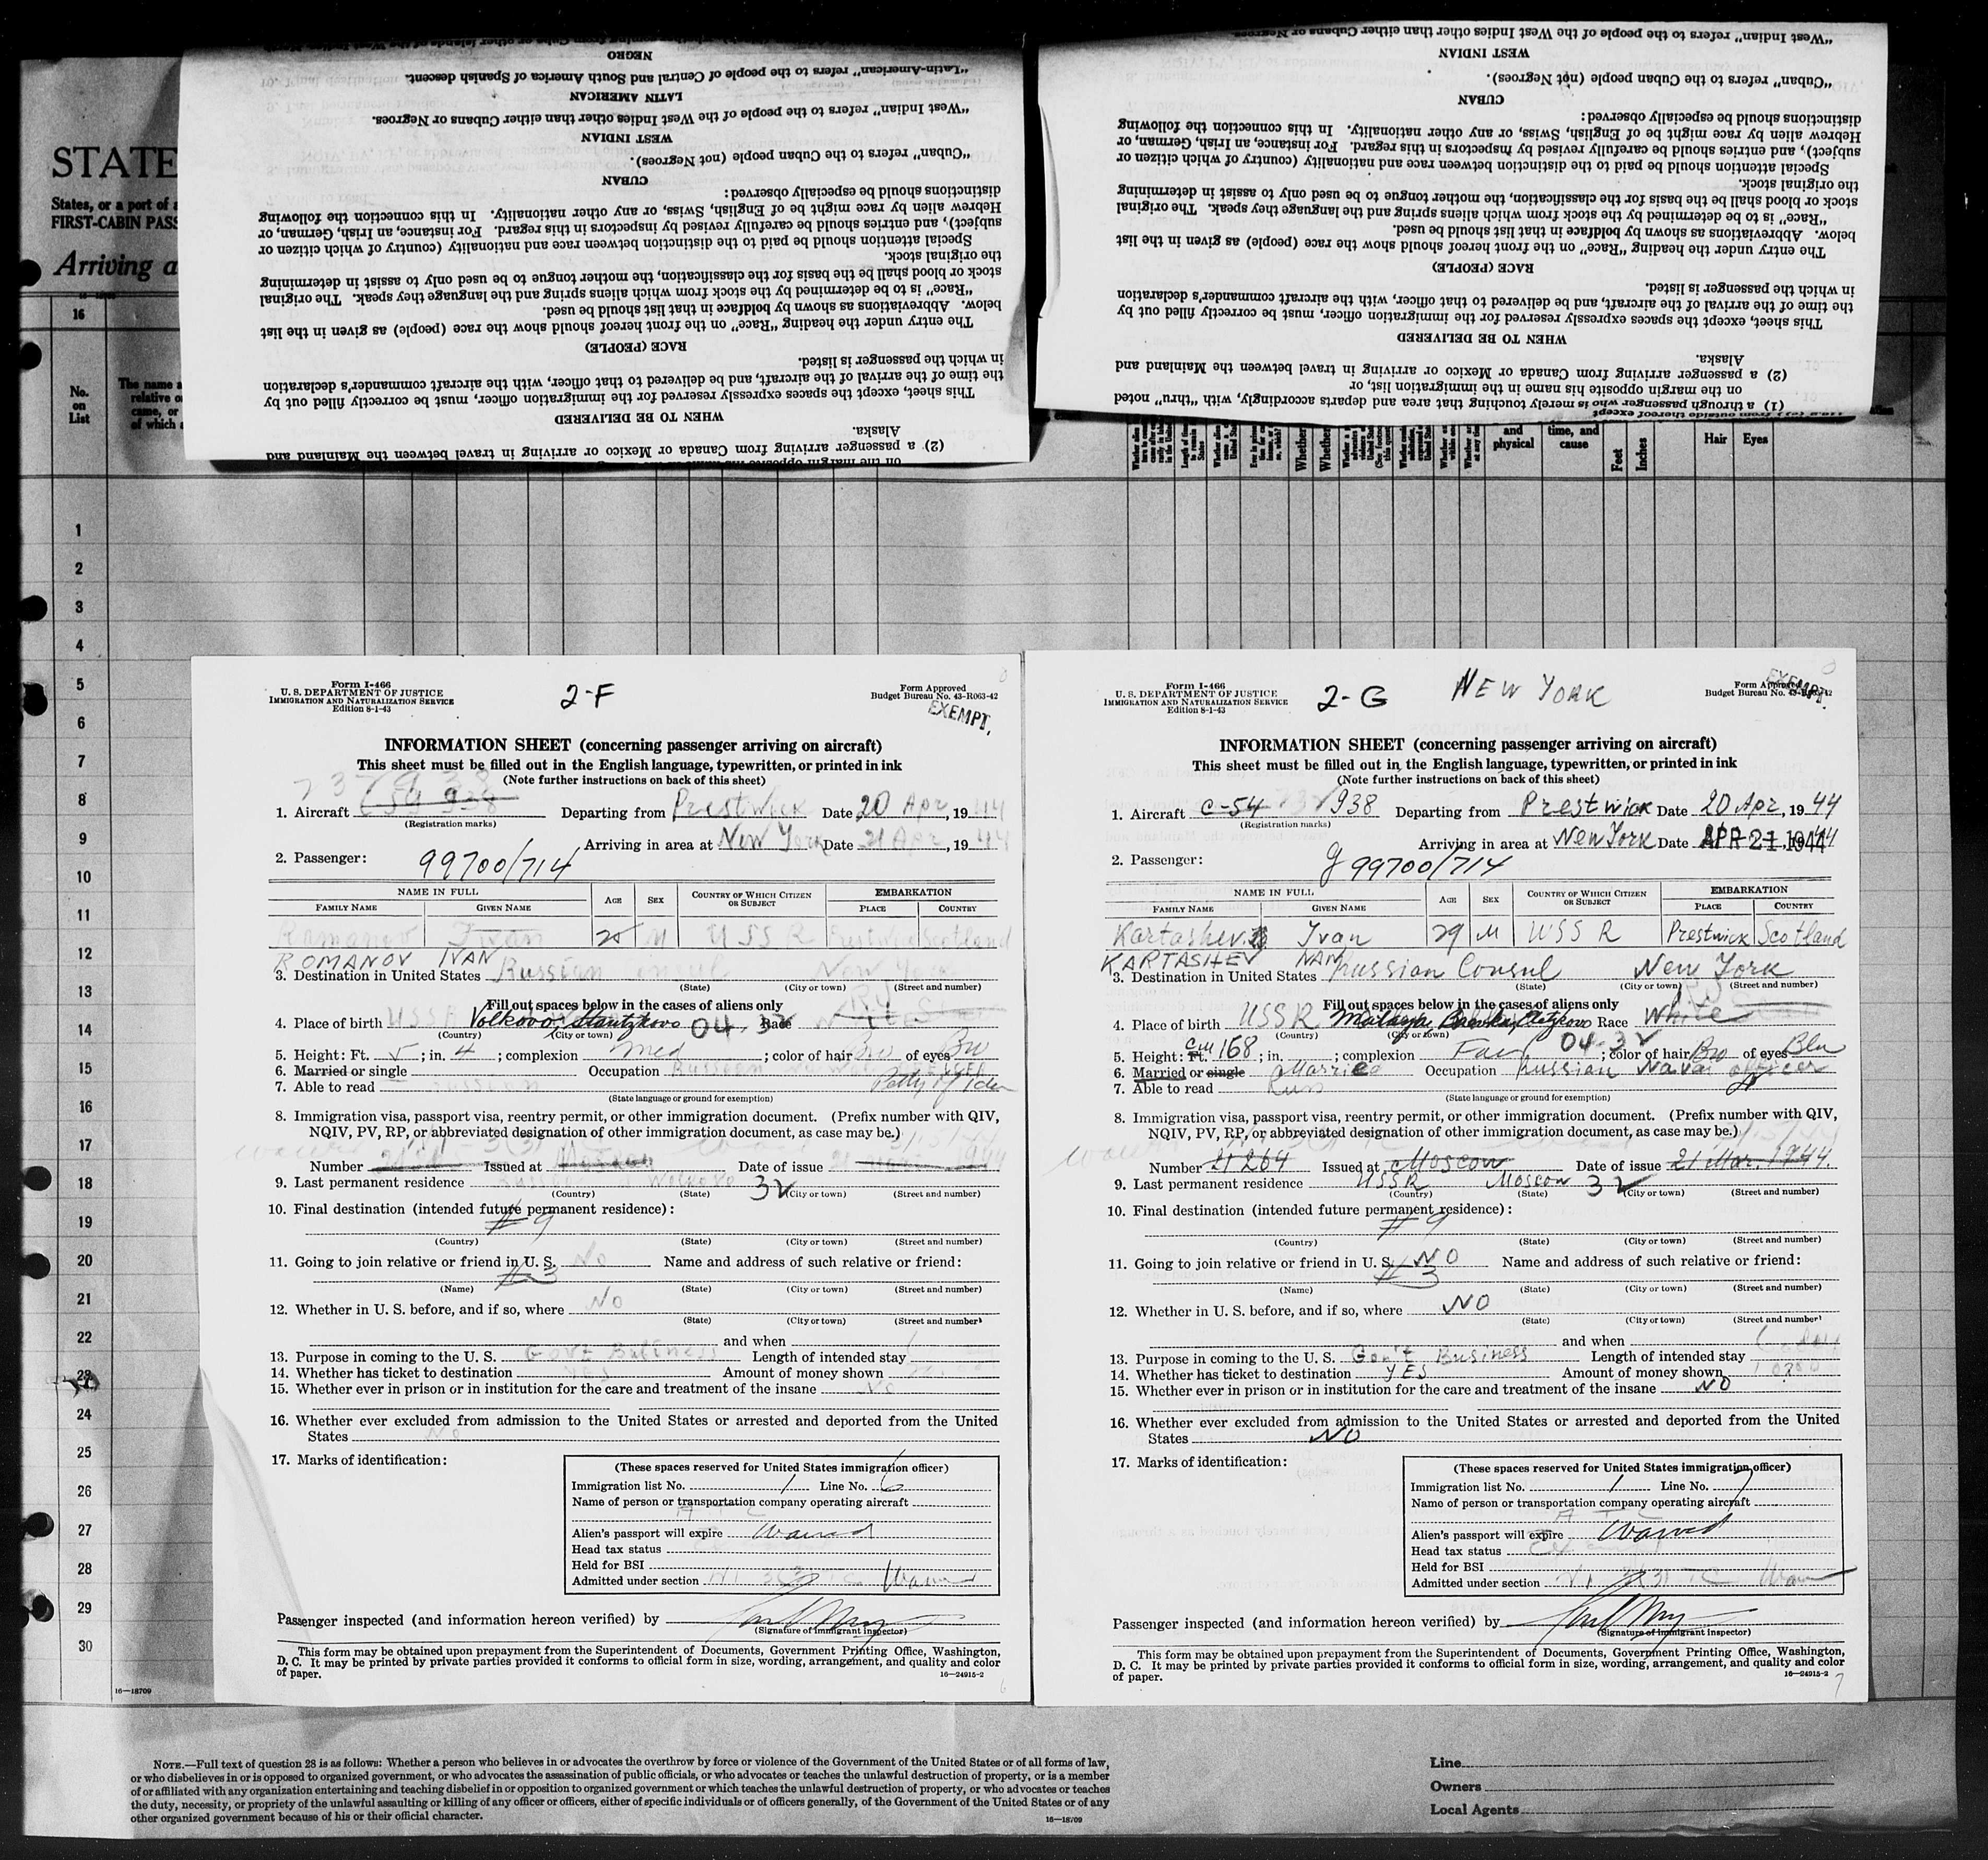 "Latin-American" refers to the people of Central and South America of Spanish descent.
NEGRO
LATIN AMERICAN
"West Indian" refers to the people of the West Indies other than either Cubans or Negroes.
WEST INDIAN
"Cuban" refers to the Cuban people (not Negroes).
CUBAN
distinctions should be especially observed:
Hebrew alien by race might be of English, Swiss, or any other nationality. In this connection the following
subject), and entries should be carefully revised by inspectors in this regard. For instance, an Irish, German, or
Special attention should be paid to the distinction between race and nationality (country of which citizen or
the original stock.
stock or blood shall be the basis for the classification, the mother tongue to be used only to assist in determining
"Race" is to be determined by the stock from which aliens spring and the language they speak. The original
below. Abbreviations as shown by boldface in that list should be used.
The entry under the heading "Race" on the front hereof should show the race (people) as given in the list
RACE (PEOPLE)
in which the passenger is listed.
the time of the arrival of the aircraft, and be delivered to that officer, with the aircraft commander's declaration
This sheet, except the spaces expressly reserved for the immigration officer, must be correctly filled out by
WHEN TO BE DELIVERED
Alaska.
(2) a passenger arriving from Canada or Mexico or arriving in travel between the Mainland and
on the margin opposite his name in the immigration list, or
"West Indian" refers to the people of the West Indies other than either Cubans or Negroes.
WEST INDIAN
"Cuban" refers to the Cuban people (not Negroes).
CUBAN
distinctions should be especially observed:
Hebrew alien by race might be of English, Swiss, or any other nationality. In this connection the following
subject), and entries should be carefully revised by inspectors in this regard. For instance, an Irish, German, or
Special attention should be paid to the distinction between race and nationality (country of which citizen or
the original stock.
stock or blood shall be the basis for the classification, the mother tongue to be used only to assist in determining
"Race" is to be determined by the stock from which aliens spring and the language they speak. The original
below. Abbreviations as shown by boldface in that list should be used.
The entry under the heading "Race" on the front hereof should show the race (people) as given in the list
RACE (PEOPLE)
in which the passenger is listed.
the time of the arrival of the aircraft, and be delivered to that officer, with the aircraft commander's declaration
This sheet, except the spaces expressly reserved for the immigration officer, must be correctly filled out by
WHEN TO BE DELIVERED
Alaska.
(2) a passenger arriving from Canada or Mexico or arriving in travel between the Mainland and
on the margin opposite his name in the immigration list, or
(1) a through passenger who is merely touching that area and departs accordingly, with "thru" noted
STATE
States, or a port of a
FIRST-CABIN PASS
Arriving a
16
No. on List
The name a
relative o
came, or
of which a
Whether
Whether
and physical
time, and cause
Feet
Inches
Hair
Eyes
1
2
3
4
5
6
7
8
9
10
11
12
13
14
15
16
17
18
19
20
21
22
23
24
25
26
27
28
29
30
16—18709
Form I-466
U. S. DEPARTMENT OF JUSTICE
IMMIGRATION AND NATURALIZATION SERVICE
Edition 8-1-43
2-F
Form Approved
Budget Bureau No. 43-R063-42
EXEMPT.
INFORMATION SHEET (concerning passenger arriving on aircraft)
This sheet must be filled out in the English language, typewritten, or printed in ink
(Note further instructions on back of this sheet)
1. Aircraft 938 Departing from Prestwick Date 20 Apr, 1944
(Registration marks)
Arriving in area at New York Date 21 Apr, 1944
2. Passenger: 99700/714
NAME IN FULL AGE SEX COUNTRY OF WHICH CITIZEN OR SUBJECT EMBARKATION
FAMILY NAME GIVEN NAME PLACE COUNTRY
Romanov Ivan 25 M USSR Prestwick Scotland
ROMANOV IVAN
3. Destination in United States Russian New York
(State) (City or town) (Street and number)
Fill out spaces below in the cases of aliens only
4. Place of birth USSR Volkovo, 04 32 Race
(Country) (City or town)
5. Height: Ft. 5; in. 4; complexion med; color of hair Bro of eyes Bro
6. Married or single Occupation Russian
7. Able to read Russian Petty Officer
(State language or ground for exemption)
8. Immigration visa, passport visa, reentry permit, or other immigration document. (Prefix number with QIV,
NQIV, PV, RP, or abbreviated designation of other immigration document, as case may be.)
Number Issued at Moscow Date of issue 1944
9. Last permanent residence 32
(Country) (State) (City or town) (Street and number)
10. Final destination (intended future permanent residence):
# 9
(Country) (State) (City or town) (Street and number)
11. Going to join relative or friend in U. S. No Name and address of such relative or friend:
# 3
(Name) (State) (City or town) (Street and number)
12. Whether in U. S. before, and if so, where No
(State) (City or town) (Street and number)
and when
13. Purpose in coming to the U. S. Govt Business Length of intended stay
14. Whether has ticket to destination Yes Amount of money shown
15. Whether ever in prison or in institution for the care and treatment of the insane No
16. Whether ever excluded from admission to the United States or arrested and deported from the United
States No
17. Marks of identification:
(These spaces reserved for United States immigration officer)
Immigration list No. 1 Line No. 6
Name of person or transportation company operating aircraft
ATC
Alien's passport will expire Waived
Head tax status
Held for BSI
Admitted under section 3(3)
Passenger inspected (and information hereon verified) by
(Signature of immigrant inspector)
This form may be obtained upon prepayment from the Superintendent of Documents, Government Printing Office, Washington,
D. C. It may be printed by private parties provided it conforms to official form in size, wording, arrangement, and quality and color
of paper. 16—24915-2
6
Form I-466
U. S. DEPARTMENT OF JUSTICE
IMMIGRATION AND NATURALIZATION SERVICE
Edition 8-1-43
2-G
NEW YORK
Form Approved
Budget Bureau No. 43-R063-42
EXEMPT.
INFORMATION SHEET (concerning passenger arriving on aircraft)
This sheet must be filled out in the English language, typewritten, or printed in ink
(Note further instructions on back of this sheet)
1. Aircraft C-54 938 Departing from Prestwick Date 20 Apr, 1944
(Registration marks)
Arriving in area at New York Date APR 21 1944
2. Passenger: 99700/714
NAME IN FULL AGE SEX COUNTRY OF WHICH CITIZEN OR SUBJECT EMBARKATION
FAMILY NAME GIVEN NAME PLACE COUNTRY
Kartashev Ivan 29 M USSR Prestwick Scotland
KARTASHEV IVAN
3. Destination in United States Russian Consul New York
(State) (City or town) (Street and number)
Fill out spaces below in the cases of aliens only
4. Place of birth USSR Malaya Race White
(Country) (City or town) 04-32
5. Height: Ft. cm 168; in. ; complexion Fair; color of hair Bro of eyes Blu
6. Married or single Married Occupation Russian Naval officer
7. Able to read Russ
(State language or ground for exemption)
8. Immigration visa, passport visa, reentry permit, or other immigration document. (Prefix number with QIV,
NQIV, PV, RP, or abbreviated designation of other immigration document, as case may be.)
Number 21264 Issued at Moscow Date of issue 21 Mar. 1944.
9. Last permanent residence USSR Moscow 32
(Country) (State) (City or town) (Street and number)
10. Final destination (intended future permanent residence):
# 9
(Country) (State) (City or town) (Street and number)
11. Going to join relative or friend in U. S. NO Name and address of such relative or friend:
# 3
(Name) (State) (City or town) (Street and number)
12. Whether in U. S. before, and if so, where NO
(State) (City or town) (Street and number)
and when
13. Purpose in coming to the U. S. Gov't Business Length of intended stay
14. Whether has ticket to destination YES Amount of money shown
15. Whether ever in prison or in institution for the care and treatment of the insane NO
16. Whether ever excluded from admission to the United States or arrested and deported from the United
States NO
17. Marks of identification:
(These spaces reserved for United States immigration officer)
Immigration list No. 1 Line No. 7
Name of person or transportation company operating aircraft
ATC
Alien's passport will expire Waived
Head tax status
Held for BSI
Admitted under section 3(3)
Passenger inspected (and information hereon verified) by
(Signature of immigrant inspector)
This form may be obtained upon prepayment from the Superintendent of Documents, Government Printing Office, Washington,
D. C. It may be printed by private parties provided it conforms to official form in size, wording, arrangement, and quality and color
of paper. 16—24915-2
7
NOTE.—Full text of question 28 is as follows: Whether a person who believes in or advocates the overthrow by force or violence of the Government of the United States or of all forms of law,
or who disbelieves in or is opposed to organized government, or who advocates the assassination of public officials, or who advocates or teaches the unlawful destruction of property, or is a member
of or affiliated with any organization entertaining and teaching disbelief in or opposition to organized government or which teaches the unlawful destruction of property, or who advocates or teaches
the duty, necessity, or propriety of the unlawful assaulting or killing of any officer or officers, either of specific individuals or of officers generally, of the Government of the United States or of any
other organized government because of his or their official character.
16—18709
Line
Owners
Local Agents